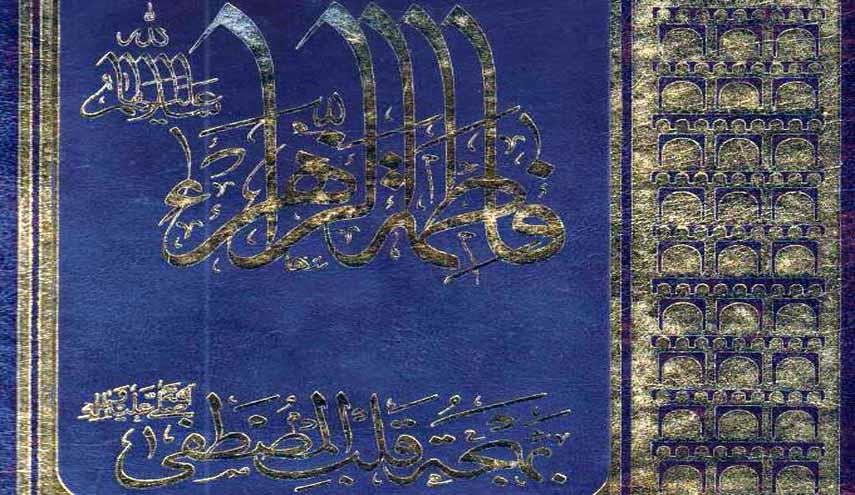 فاطمة الزهراء سلام الله عليها
بهجة قلب المصطفى صلى الله عليه وآله